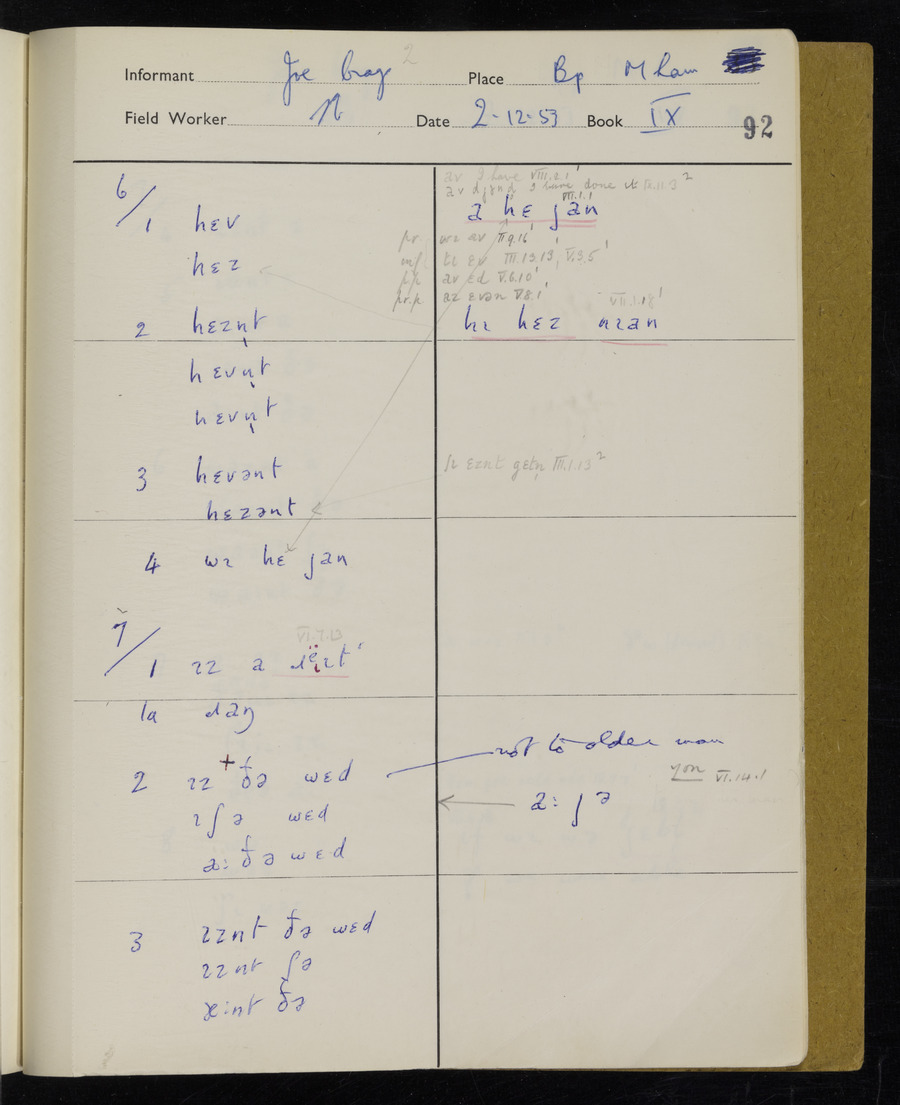 Informant Joe 2 Place Bp M ham
Field Worker Date 2-12-53 Book IX 92
av I have VIII.2.1'
av I have done it IX.11.3 2
VIII.1.1
6/1 hɛv a hɛ jan
pr. wɪ av II.9.16'
hɛz inf. tɪ ɛv III.13.13', V.3.5'
p.p. av ɛd V.6.10'
pr.p. az ɛvən V.8.1' VII.1.18'
2 hɛzn̩t hɪ hɛz nɪan
hɛvn̩t
hɛvn̩t
3 hɛvənt ɪ ɛznt gɛtn̩ III.1.13 2
hɛzənt
4 wɪ hɛ jan
7/
VI.7.13
1 ɪz a
1a
2 ɪz ðə wɛd not to older man
you VI.14.1
ɪʃ ə wɛd a: ʃ ə
a: ðə wɛd
3 ɪznt ðə wɛd
ɪznt ʃə
æ:nt ðə